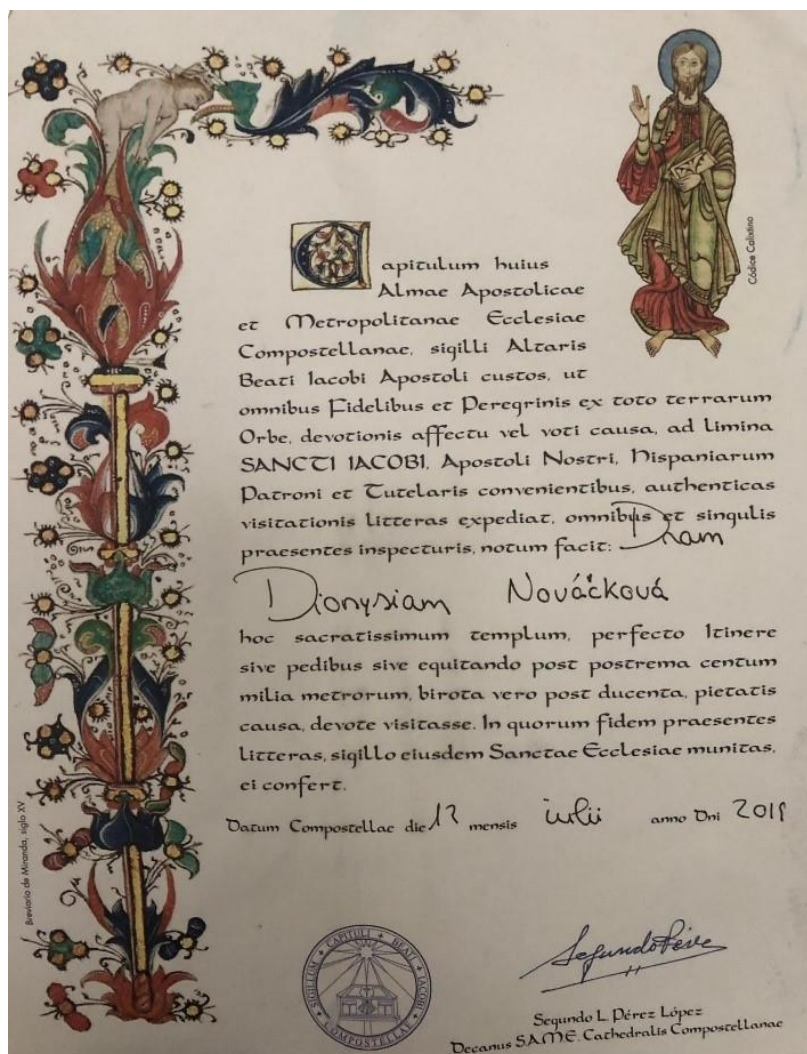 Códice Calixtino
Capitulum huius
Almae Apostolicae
et Metropolitanae Ecclesiae
Compostellanae, sigilli Altaris
Beati Iacobi Apostoli custos, ut
omnibus Fidelibus et Peregrinis ex toto terrarum
Orbe, devotionis affectu vel voti causa, ad limina
SANCTI IACOBI, Apostoli Nostri, Hispaniarum
Patroni et Tutelaris convenientibus, authenticas
visitationis litteras expediat, omnibus et singulis
praesentes inspecturis, notum facit: Dnam
Dionysiam Nováčková
hoc sacratissimum templum, perfecto Itinere
sive pedibus sive equitando post postrema centum
milia metrorum, birota vero post ducenta, pietatis
causa, devote visitasse. In quorum fidem praesentes
litteras, sigillo eiusdem Sanctae Ecclesiae munitas,
ei confert.
Datum Compostellae die mensis iulii anno Dni
Breviario de Miranda, siglo XV
SIGILLUM CAPITULI BEATI IACOBI COMPOSTELLAE
Segundo L. Pérez López
Decanus S.A.M.E. Cathedralis Compostellanae